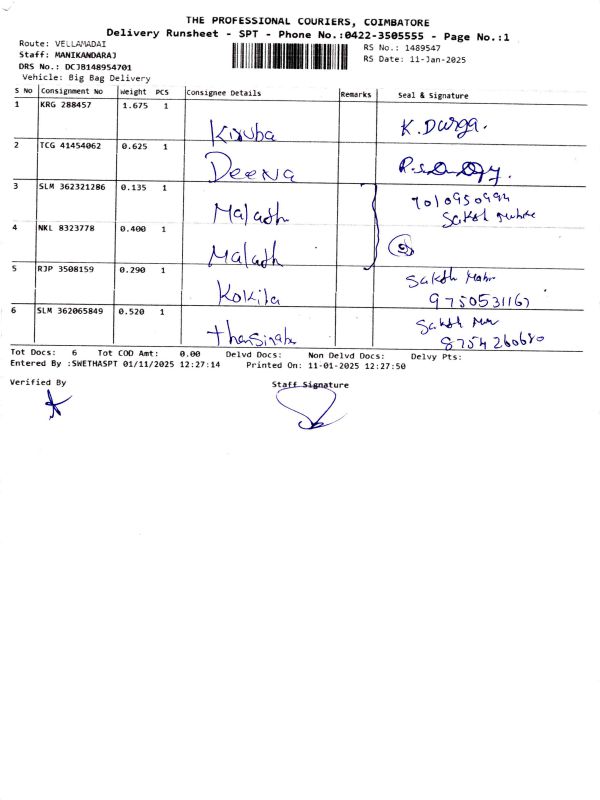 THE PROFESSIONAL COURIERS, COIMBATORE
Delivery Runsheet - SPT - Phone No.:0422-3505555 - Page No.:1
Route: VELLAMADAI
RS No.: 1489547
Staff: MANIKANDARAJ
RS Date: 11-Jan-2025
DRS No.: DCJB148954701
Vehicle: Big Bag Delivery
S No Consignment No Weight PCS Consignee Details Remarks Seal & Signature
1 KRG 288457 1.675 1
Kiruba K. Durga.
2 TCG 41454062 0.625 1
Deena
3 SLM 362321286 0.135 1
Malath
4 NKL 8323778 0.400 1
Malath
5 RJP 3508159 0.290 1
Kokila 9750531167
6 SLM 362065849 0.520 1
8754260680
Tot Docs: 6 Tot COD Amt: 0.00 Delvd Docs: Non Delvd Docs: Delvy Pts:
Entered By :SWETHASPT 01/11/2025 12:27:14 Printed On: 11-01-2025 12:27:50
Verified By Staff Signature